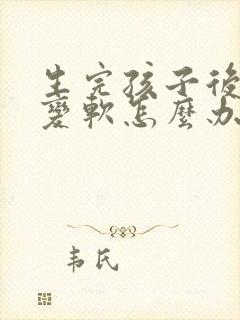 生完孩子後
變軟怎麼办
韦氏